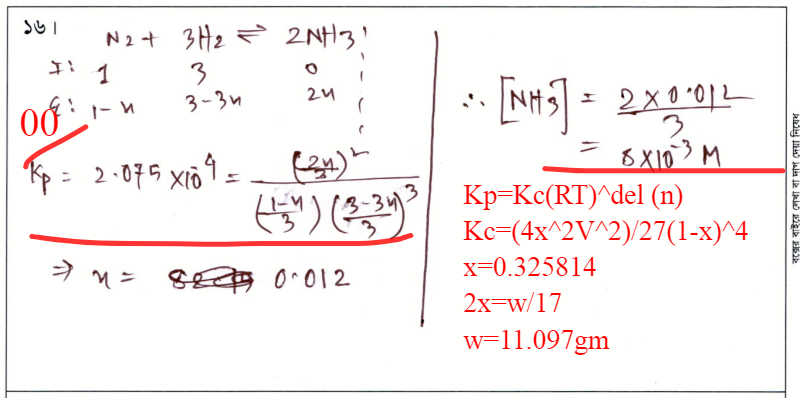 ১৬।
N2 + 3H2 ⇌ 2NH3
I: 1 3 0
E: 1-x 3-3x 2x
00
Kp = 2.075 × 10^-4 = (2x/3)^2 / ((1-x)/3) ((3-3x)/3)^3
⇒ x = 0.012
∴ [NH3] = 2 × 0.012 / 3
= 8 × 10^-3 M
Kp=Kc(RT)^del (n)
Kc=(4x^2V^2)/27(1-x)^4
x=0.325814
2x=w/17
w=11.097gm
বক্সের বাইরে লেখা বা দাগ দেয়া নিষেধ